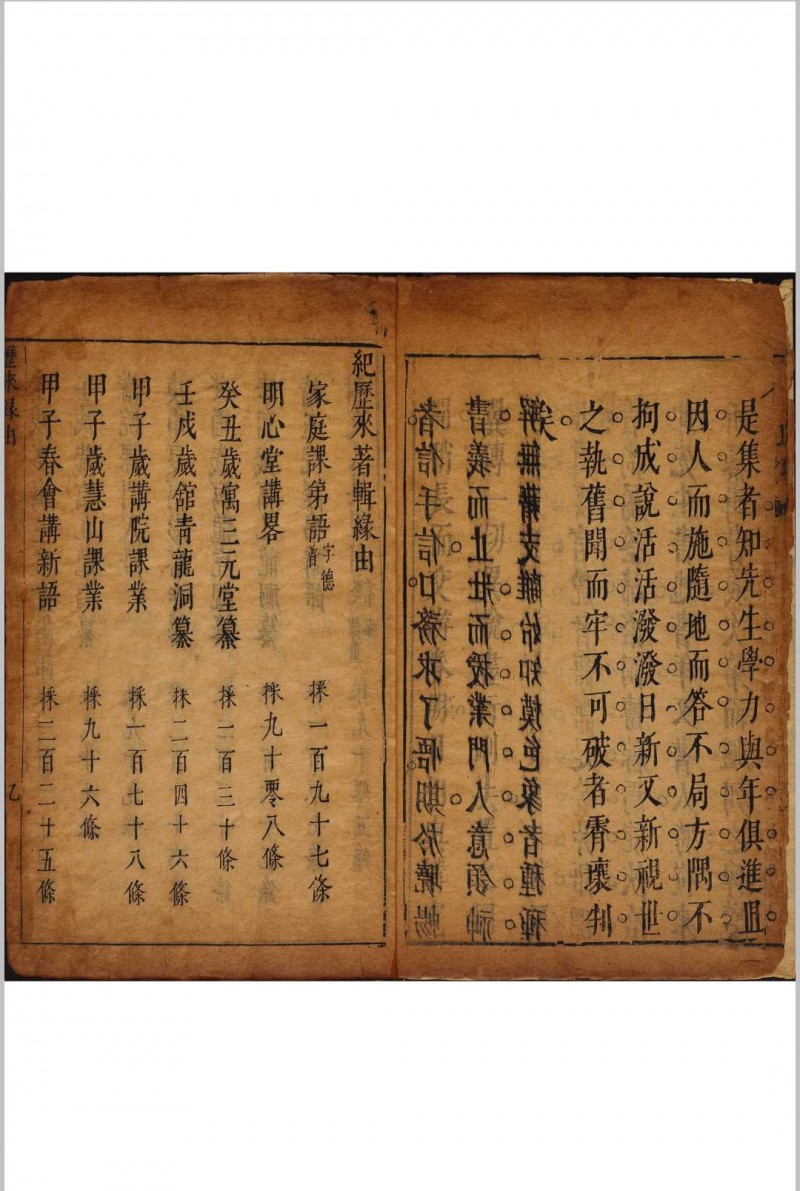 是集者知先生學力與年俱進且
因人而施隨地而答不局方隅不
拘成說活活潑潑日新又新視世
之執舊聞而牢不可破者霄壤判
矣
解無藉支離始知摸色象者種種
書義而止壯而授業門人意領神
者信手信口務求了悟期於曉暢
紀歷來著輯緣由
家庭課弟語字德普 採一百九十七條
明心堂講畧 採九十零八條
癸丑歲寓三元堂纂 採一百三十條
壬戌歲舘青龍洞纂 採二百四十六條
甲子歲講院課業 採一百七十八條
甲子歲慧山課業 採九十六條
甲子春會講新語 採二百二十五條
歷來緣由